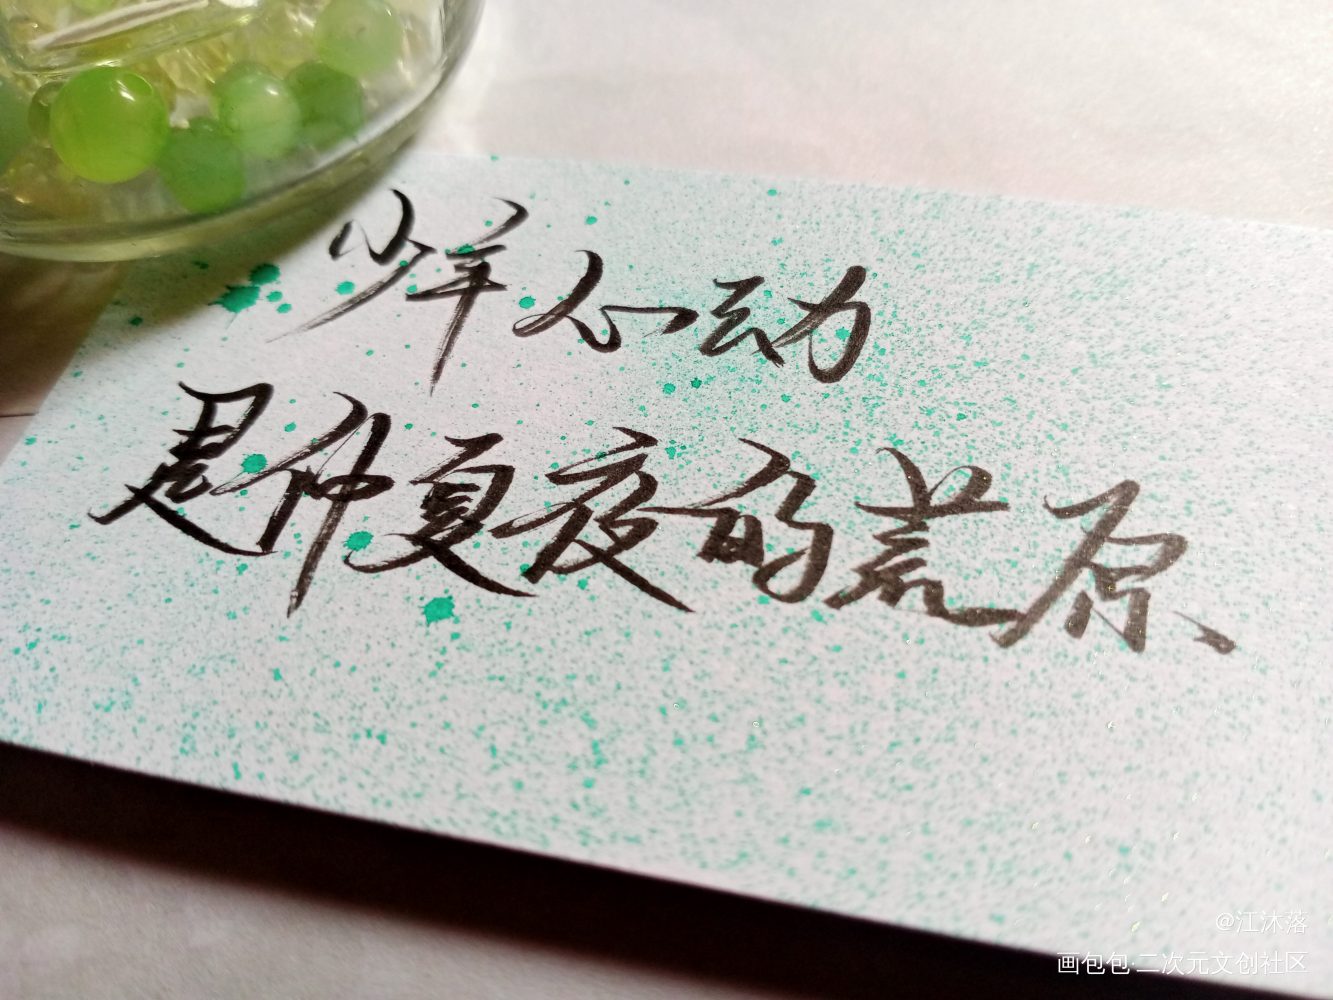 少年心动
是仲夏夜的荒原
@江沐落
画包包·二次元文创社区